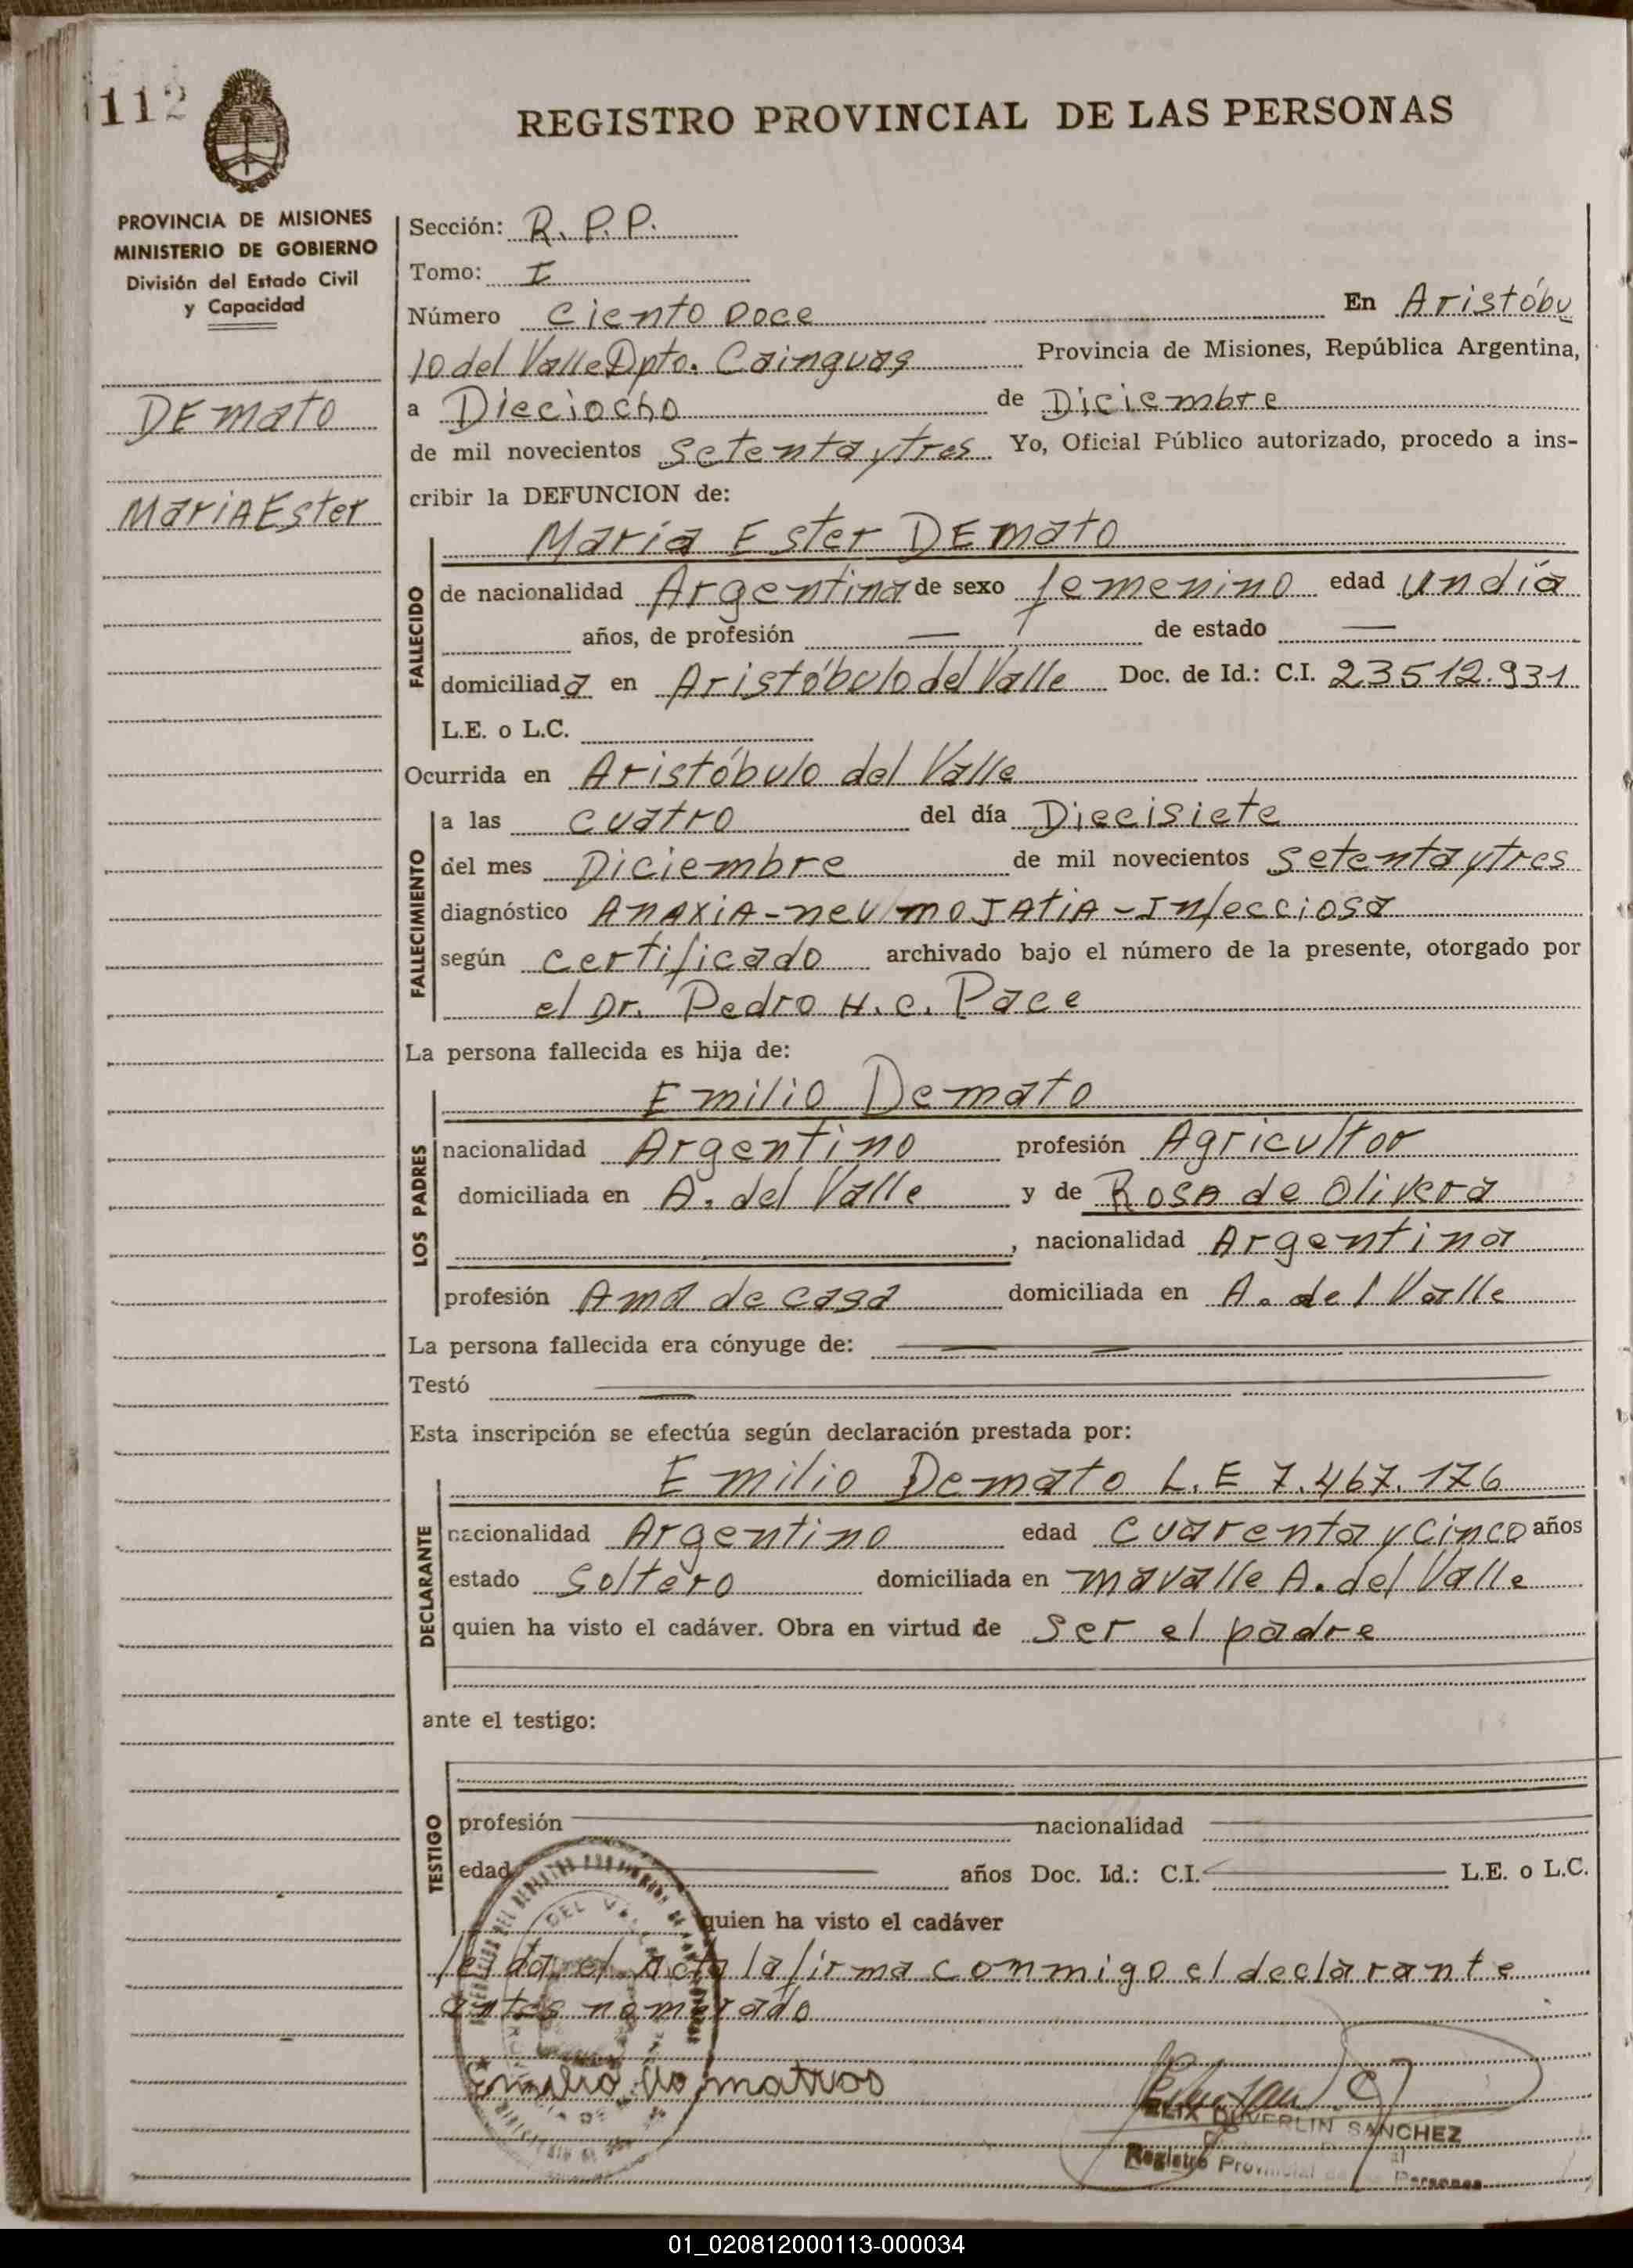 112
REGISTRO PROVINCIAL DE LAS PERSONAS
PROVINCIA DE MISIONES
MINISTERIO DE GOBIERNO
División del Estado Civil
y Capacidad
DEmato
MariAEster
Sección: R. P. P.
Tomo: I
Número Ciento Doce En Aristóbu
lo del Valle Dpto. Cainguas Provincia de Misiones, República Argentina,
a Dieciocho de Diciembre
de mil novecientos Setenta y tres Yo, Oficial Público autorizado, procedo a ins-
cribir la DEFUNCION de:
María Ester DEmato
FALLECIDO
de nacionalidad Argentina de sexo femenino edad un día
años, de profesión — de estado —
domiciliada en Aristóbulo del Valle Doc. de Id.: C.I. 23512.931
L.E. o L.C.
Ocurrida en Aristóbulo del Valle
FALLECIMIENTO
a las cuatro del día Diecisiete
del mes Diciembre de mil novecientos Setenta y tres
diagnóstico AnAXiA-neumoJAtiA-Infecciosa
según certificado archivado bajo el número de la presente, otorgado por
el Dr. Pedro H.C. Pace
La persona fallecida es hija de:
LOS PADRES
Emilio Demato
nacionalidad Argentino profesión Agricultor
domiciliada en A. del Valle y de Rosa de Olivera
, nacionalidad Argentina
profesión Ama de casa domiciliada en A. del Valle
La persona fallecida era cónyuge de: —
Testó —
Esta inscripción se efectúa según declaración prestada por:
DECLARANTE
Emilio Demato L.E 7.467.176
nacionalidad Argentino edad cuarenta y cinco años
estado Soltero domiciliada en mavalle A. del Valle
quien ha visto el cadáver. Obra en virtud de ser el padre
ante el testigo:
TESTIGO
profesión nacionalidad
edad años Doc. Id.: C.I. L.E. o L.C.
quien ha visto el cadáver
leída el acta la firma conmmigo el declarante
antes nomerado
Emilio
FELIX DUVERLIN SANCHEZ
Registro Provincial de las Personas
01_020812000113-000034